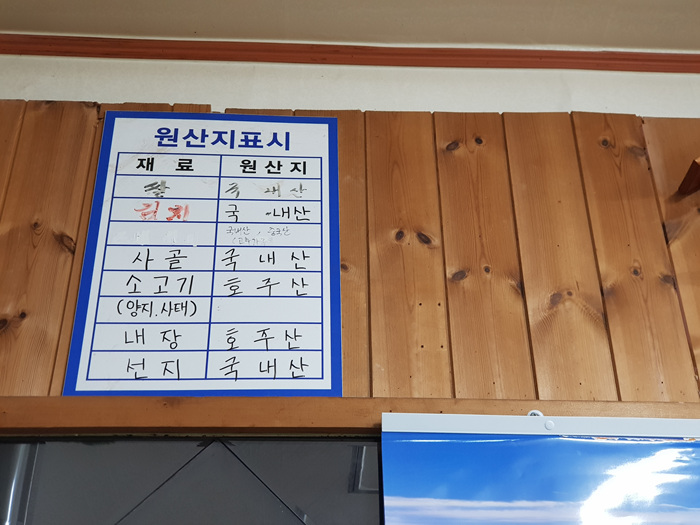 원산지표시
재 료 원 산 지
쌀 국 내 산
국 내산
국내산, 중국산
사 골 국 내 산
소 고 기 호 주 산
(양지.사태)
내 장 호 주 산
선 지 국 내 산